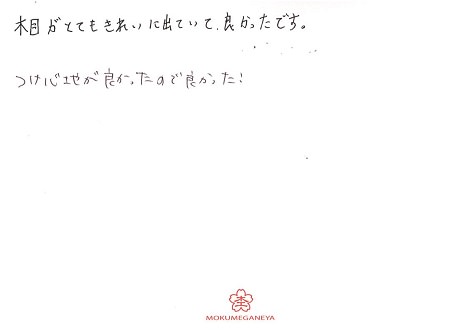 木目がとてもきれいに出ていて、良かったです。
つけ心地が良かったので良かった!
MOKUMEGANEYA